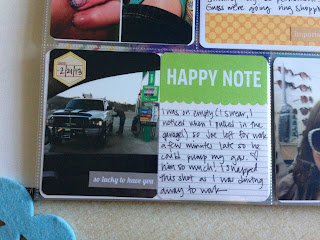 Guess we're going ring shoppin
2/21/13
HAPPY NOTE
I was on empty (I swear, I
noticed when I pulled in the
garage) so Joe left for work
a few minutes late so he
could pump my gas. I ♡
him so much! I snapped
this shot as I was driving
away to work
so lucky to have you